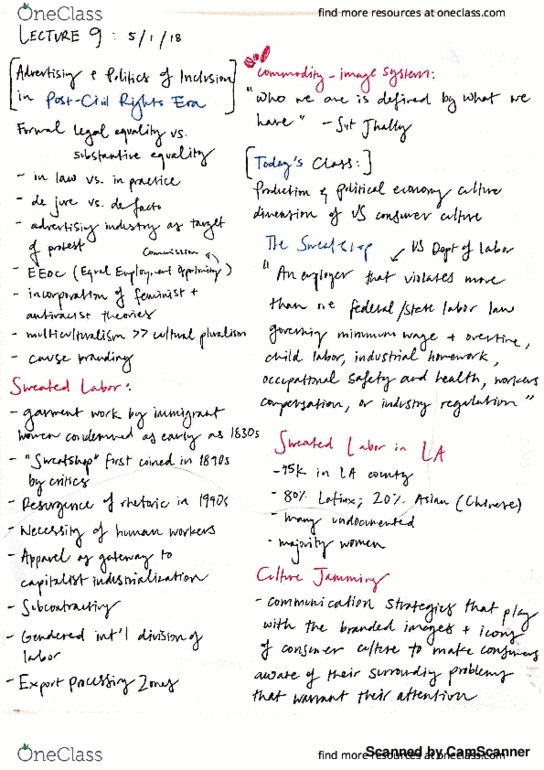 OneClass
find more resources at oneclass.com
LECTURE 9 : 5/1/18
[Advertising & Politics of Inclusion
in Post-Civil Rights Era]
Formal legal equality vs.
substantive equality
- in law vs. in practice
- de jure vs. de facto
- advertising industry as target
of protest
Commission
- EEOC (Equal Employment Opportunity)
- incorporation of feminist +
antiracist theories
- multiculturalism >> cultural pluralism
- cause branding
Sweated Labor:
- garment work by immigrant
women condemned as early as 1830s
- "Sweatshop" first coined in 1890s
by critics
- Resurgence of rhetoric in 1990s
- Necessity of human workers
- Apparel as gateway to
capitalist industrialization
- Subcontracting
- Gendered int'l division of
labor
- Export Processing Zones
Commodity-image system:
"Who we are is defined by what we
have" - Sut Jhally
[Today's Class:]
Production & political economy culture
dimension of US consumer culture
The Sweatshop
US Dept of Labor
"An employer that violates more
than one federal/state labor law
governing minimum wage + overtime,
child labor, industrial homework,
occupational safety and health, workers
compensation, or industry regulation"
Sweated Labor in LA
- 45K in LA county
- 80% Latinx; 20% Asian (Chinese)
- many undocumented
- majority women
Culture Jamming
- communication strategies that play
with the branded images + icons
of consumer culture to make consumers
aware of their surrounding problems
that warrant their attention
OneClass
find more resources at oneclass.com
Scanned by CamScanner